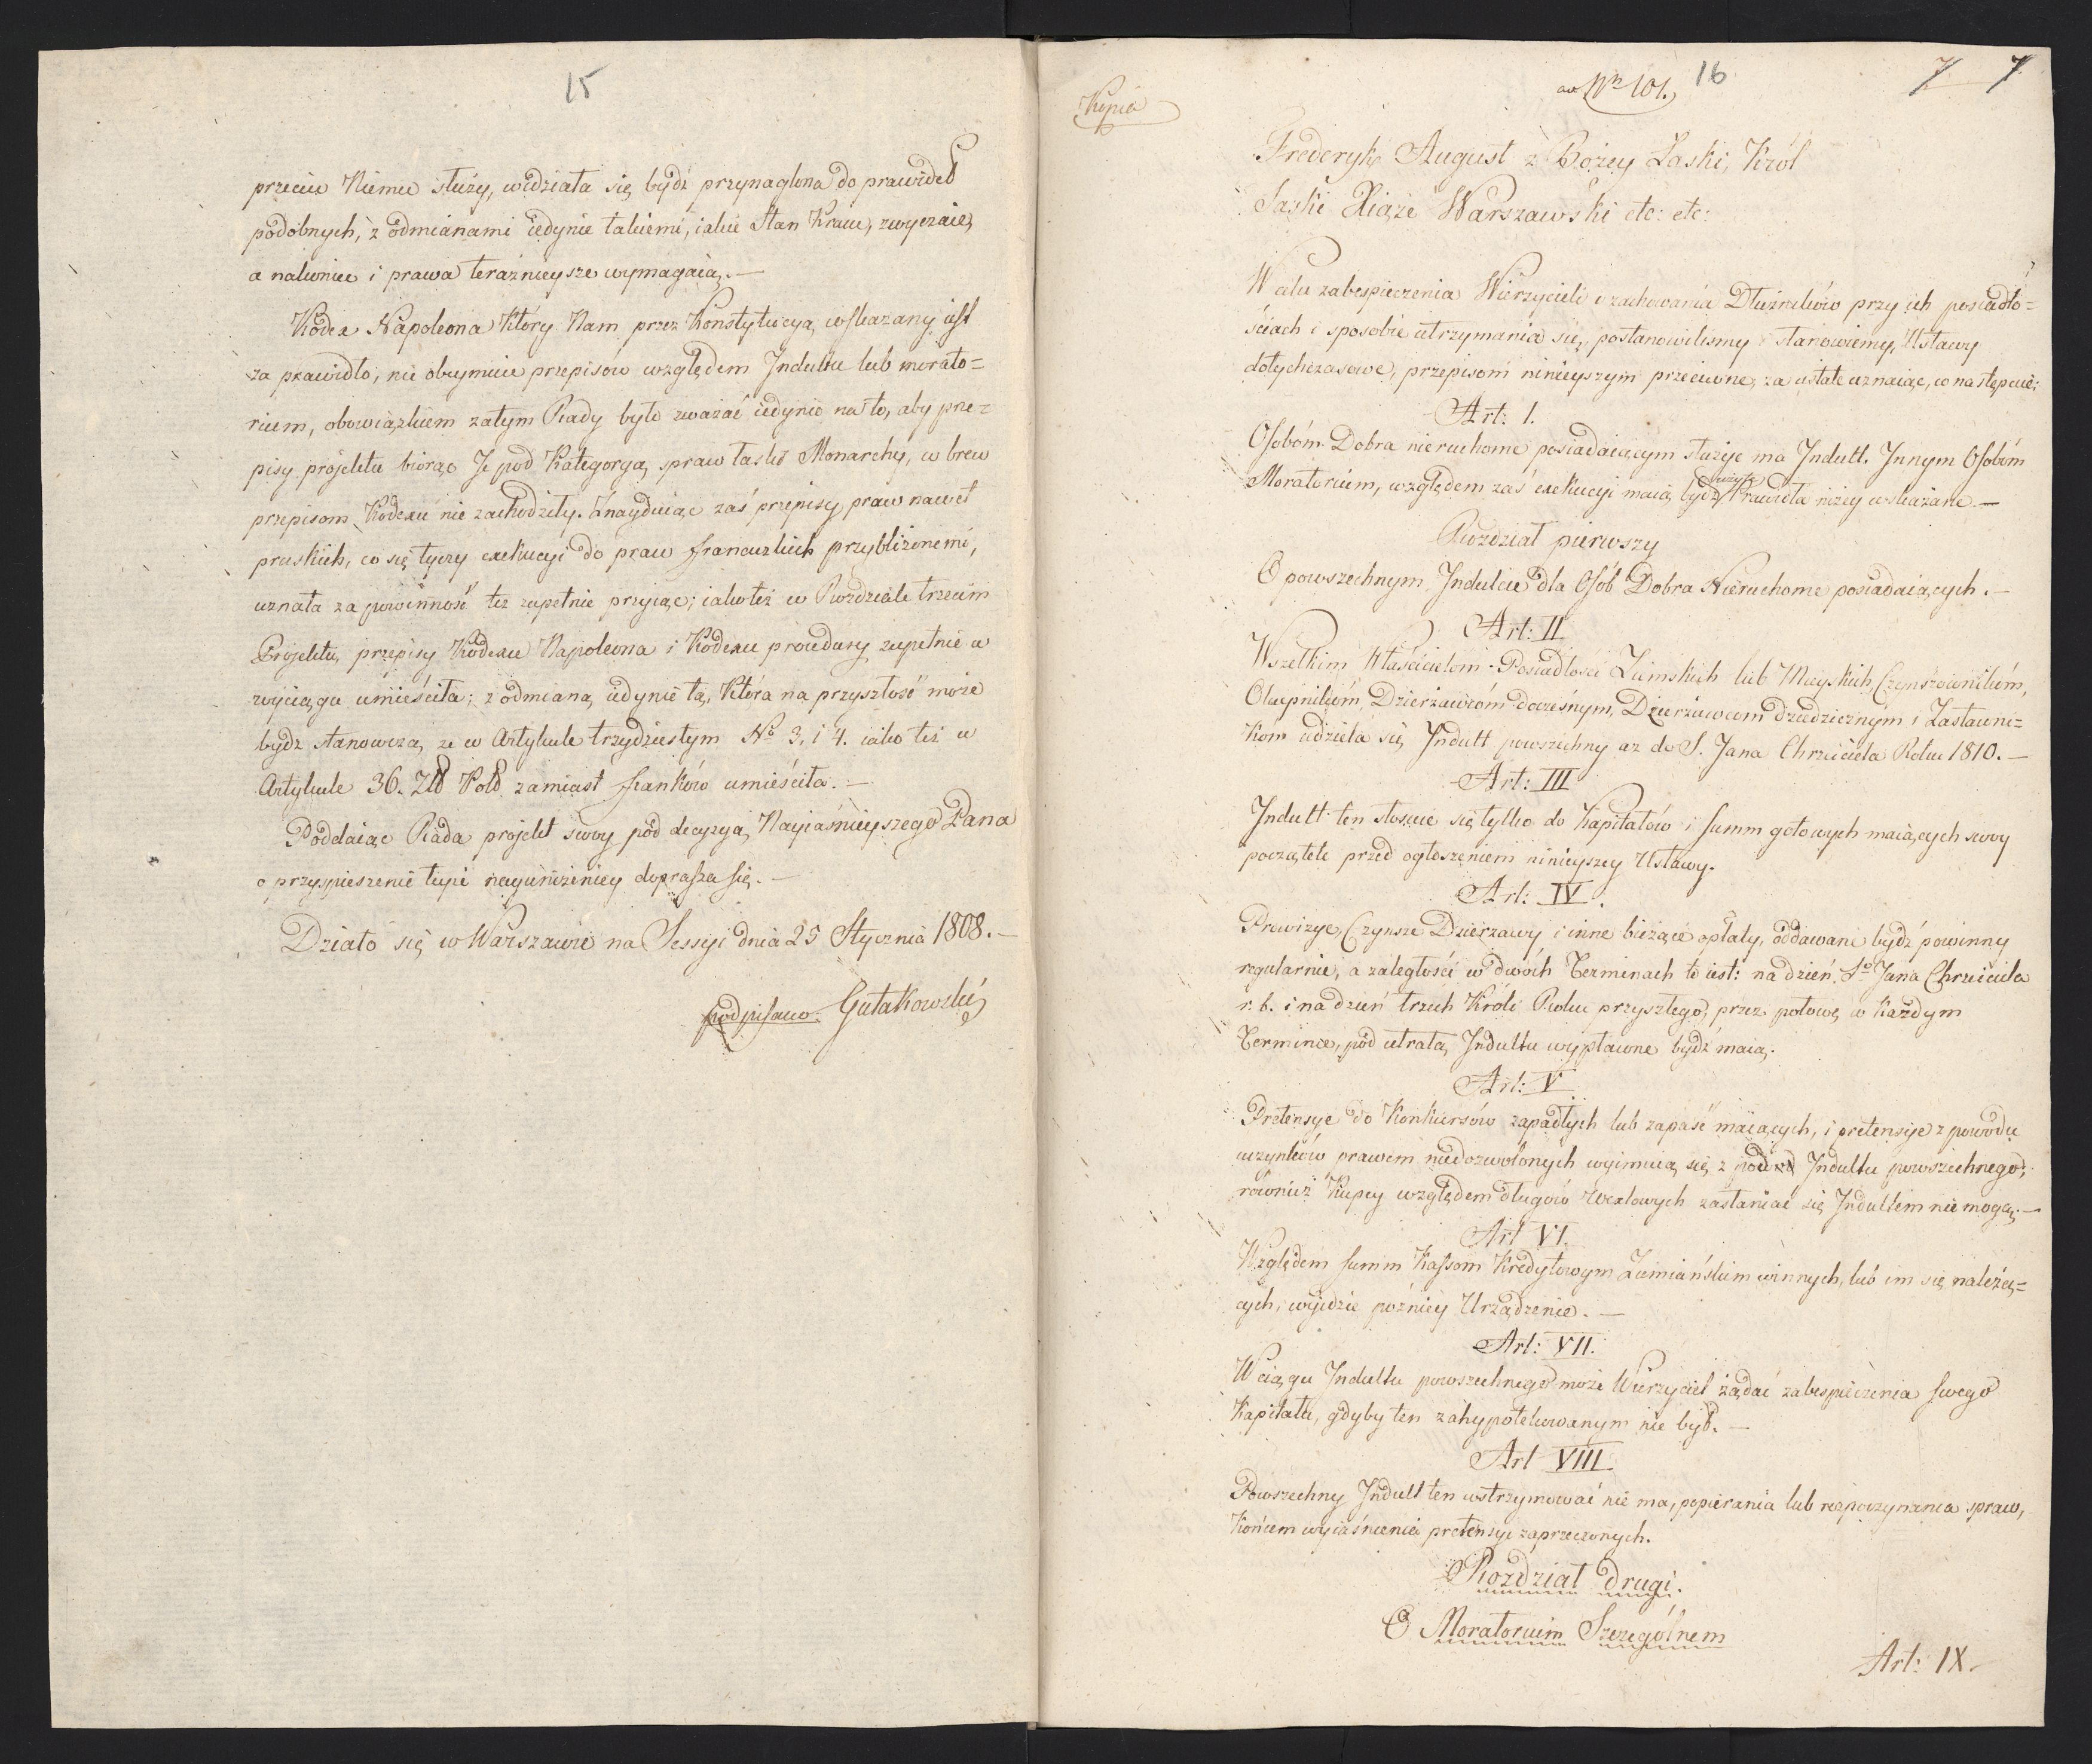 15
przeciw Niemu służy, widziała się bydź przynaglona do prawideł
podobnych, z odmianami iedynie takiemi, iakie Stan Kraiu, zwyczaie,
a nakoniec i prawa teraźnieysze wymagaią. —
Kodex Napoleona Który Nam przez Konstytucyą wskazany iest
za prawidło, nie obeymuie przepisów względem Jndultu lub morato=
rium, obowiązkiem zatym Rady było zważać iedynie na to, aby prze=
pisy projektu biorąc Je pod Kategoryą spraw łaski Monarchy, w brew
przepisom Kodexu nie zachodziły. Znayduiąc zaś przepisy praw nawet
pruskich, co się tyczy exekucyi do praw francuzkich przybliżonemi,
uznała za powinność też zupełnie przyiąć; iako też w Rozdziale trzecim
Projektu, przepisy Kodexu Napoleona i Kodexu procedury zupełnie w
wyciągu umieściła; z odmianą iedynie tą, Która na przyszłość może
bydz stanowczą, ze w Artykule trzydziestym No 3, i 4. iako też w
Artykule 36. Zło Pols. zamiast franków umieściła. —
Poddaiąc Rada projekt swoy pod decyzyą Nayiaśnieyszego Pana
o przyspieszenie teyże nayuniżeniey doprasza się. —
Działo się w Warszawie na Sessyi dnia 25 Stycznia 1808. —
podpisano. Gutakowski
Kopia
ad Nr 101.
16
7 7
Frederyk August z Bożey Łaski, Król
Saski Xiąże Warszawski etc: etc:
W celu zabespieczenia Wierzycieli i zachowania Dłużników przy ich posiadło=
ściach i sposobie utrzymania się, postanowilismy i stanowiemy, Ustawy
dotychczasowe, przepisom ninieyszym przeciwne, za ustałe uznaiąc, co następuie:
Art: 1.
Osobóm Dobra nieruchome posiadaiącym służyć ma Jndult. Jnnym Osobóm
Moratorium, względem zaś exekucyi maią bydź użyte Prawidła niżey wskazane —
Rozdział pierwszy
O powszechnym Jndulcie dla Osób Dobra Nieruchome posiadaiących. —
Art: II
Wszelkim Właścicielom Posiadłości Ziemskich lub Mieyskich, Czynszownikóm,
Okupnikóm, Dzierżawcóm doczesnym, Dzierżawcom dziedzicznym i Zastawni=
Kom udziela się Jndult powszechny az do S. Jana Chrzciciela Roku 1810. —
Art: III
Jndult ten stosuie się tylko do Kapitałów i summ gotowych maiących swoy
początek przed ogłoszeniem ninieyszey Ustawy.
Art: IV.
Prowizye, Czynsze Dzierżawy i inne bieżące opłaty, oddawane bydź powinny
regularnie, a zaległości w dwóch Terminach to iest: na dzień So Jana Chrzciciela
r. b. i na dzień trzech Króli Roku przyszłego, przez połowę w Każdym
Terminie, pod utratą Jndultu wypłacone bydź maią.
Art: V
Pretensye do Konkursów zapadłych lub zapaść maiących, i pretensye z powodu
uczynków prawem niedozwolonych wyimuią się z pod Jndultu powszechnego,
również Kupcy względem długów Wexlowych zasłaniać się Jndultem nie mogą. —
Art VI.
Względem summ Kassom Kredytowym Ziemiańskim winnych, lub im się należą=
cych, wyjdzie pożniey Urządzenie. —
Art: VII.
W ciągu Jndultu powszechnego może Wierzyciel żądać zabespieczenia swego
Kapitału, gdyby ten zahypotekowanym nie był. —
Art VIII.
Powszechny Jndult ten wstrzymować nie ma, popierania lub rozpoczynania spraw,
Końcem wyiaśnienia pretensyi zaprzeczonych.
Rozdział drugi.
O Moratorium Szczególnem
Art: IX.